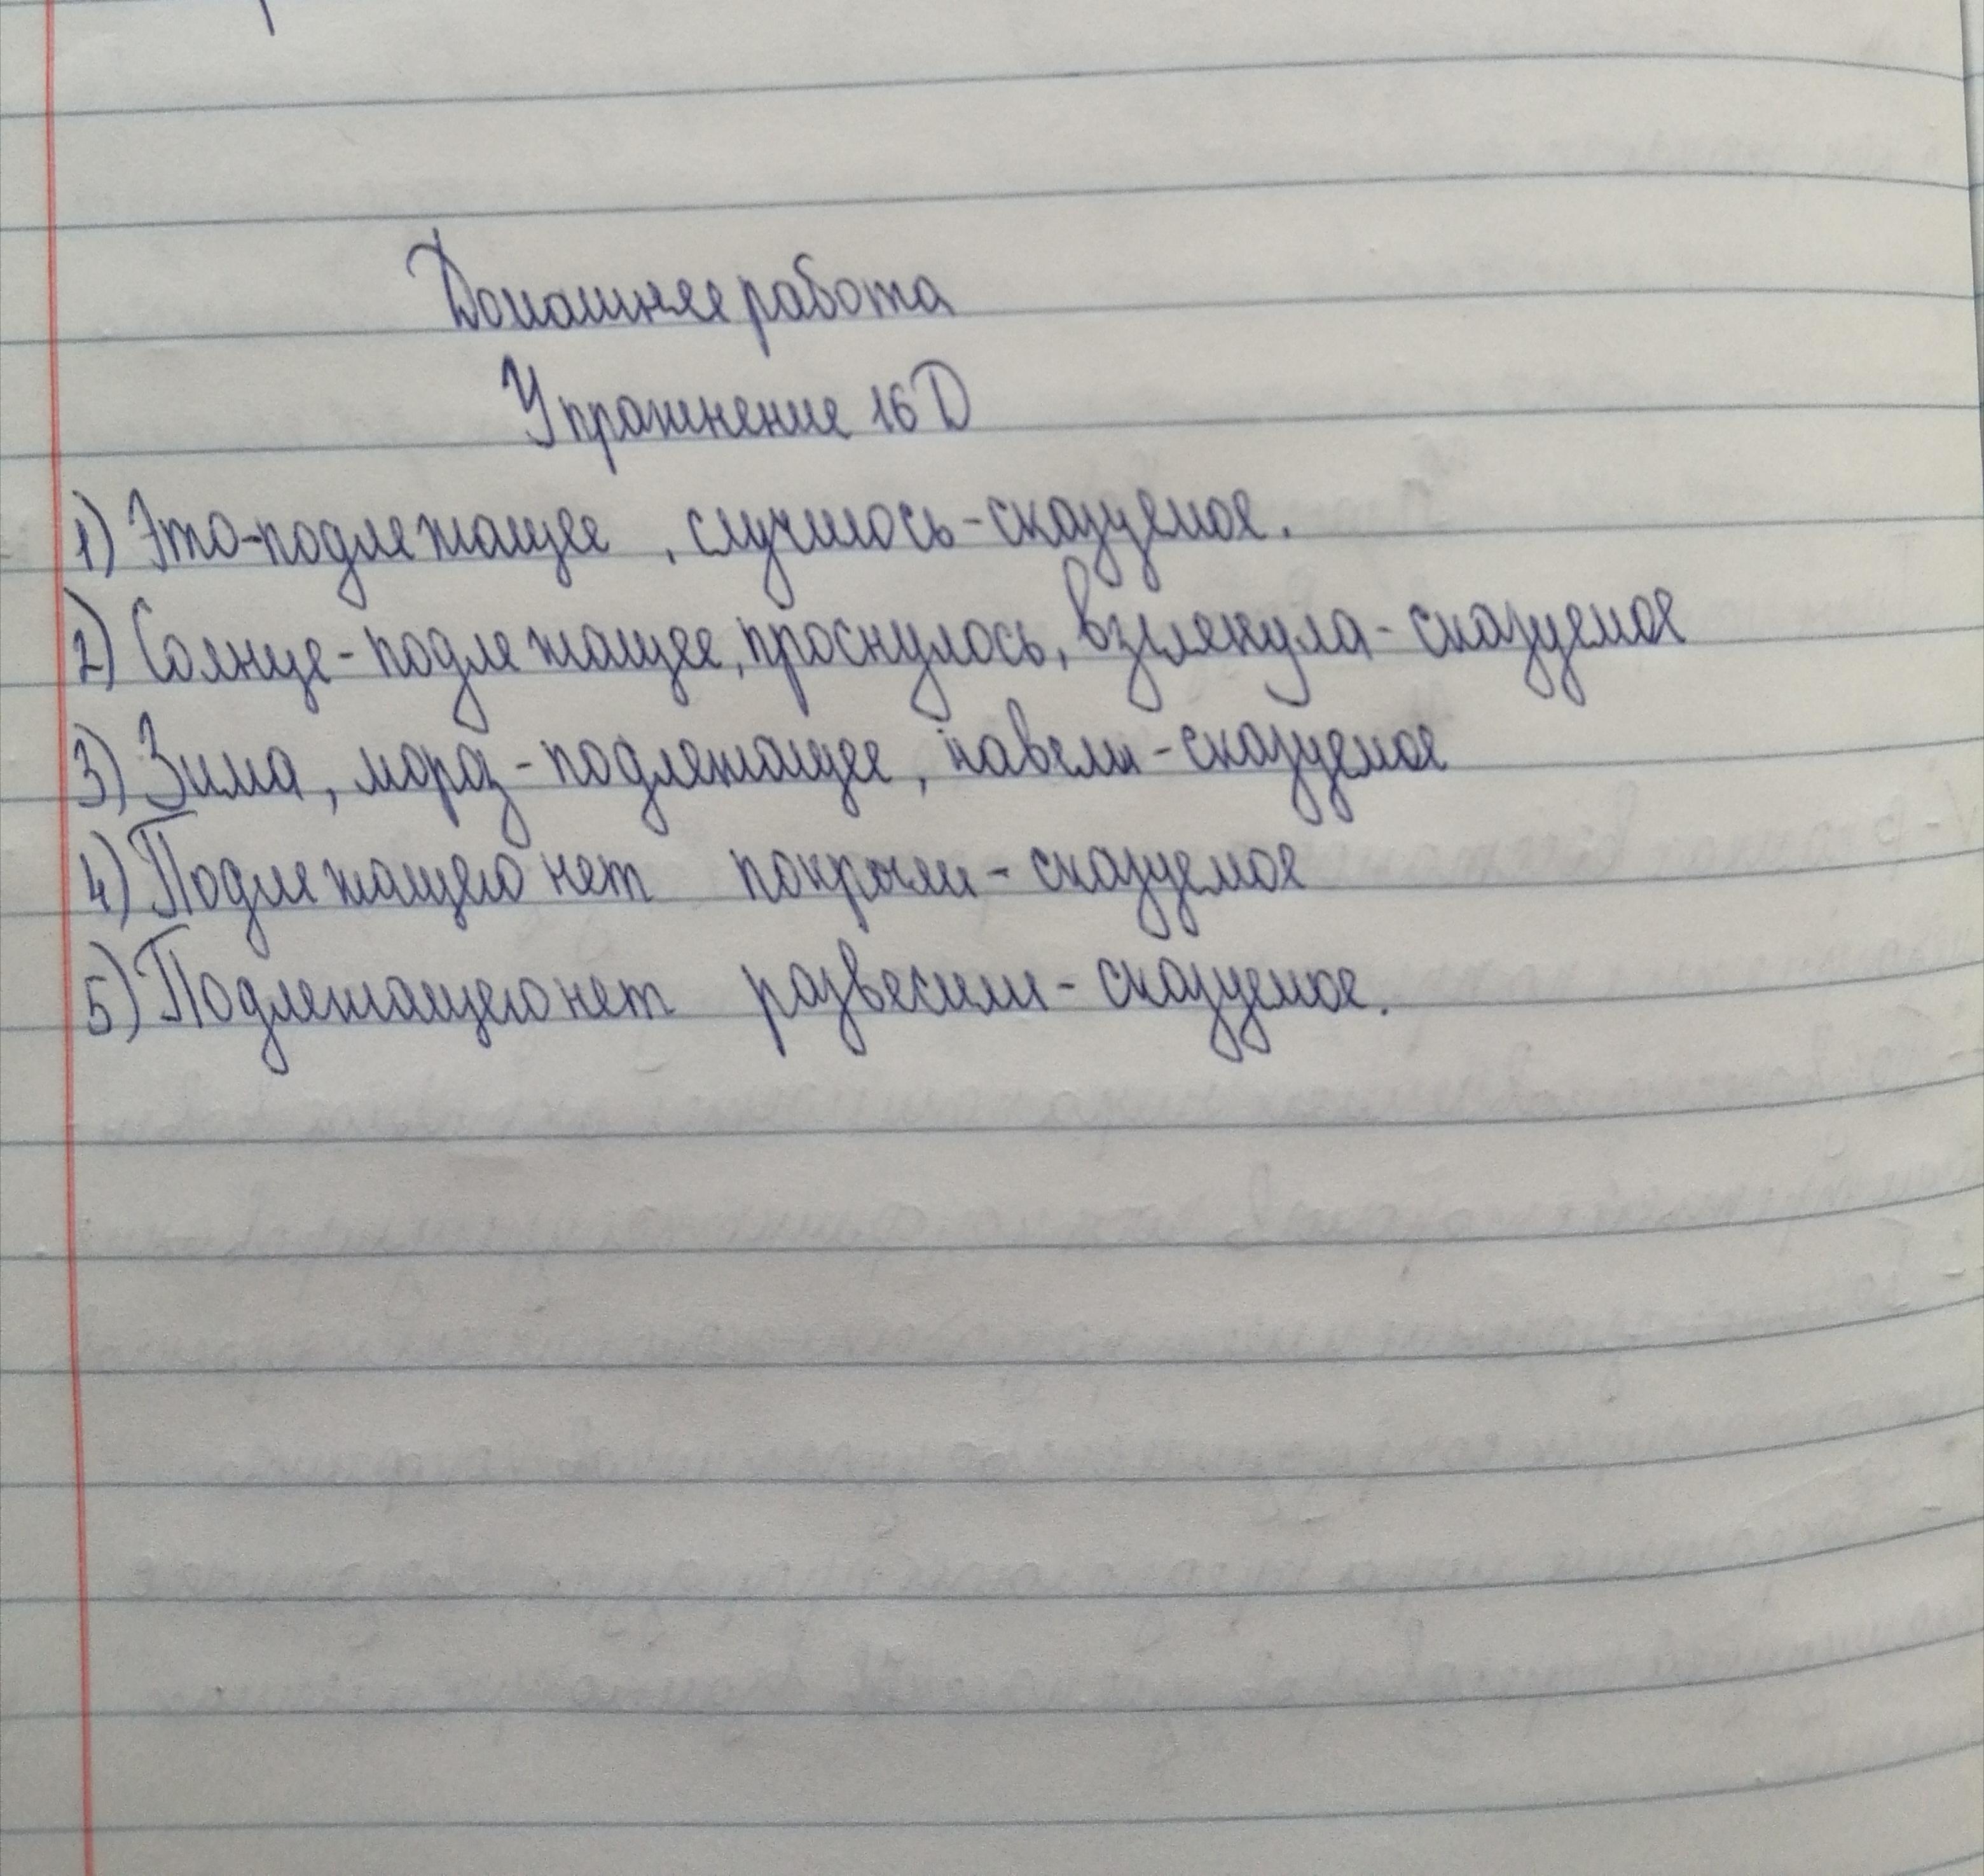 Домашняя работа
Упражнение 16D
1) Это-подлежащее , случилось-сказуемое.
2) Солнце-подлежащее, проснулось, взглянула-сказуемое
3) Зима, мороз-подлежащее, навели-сказуемое
4) Подлежащего нет покрыли-сказуемое
5) Подлежащего нет развесили-сказуемое.